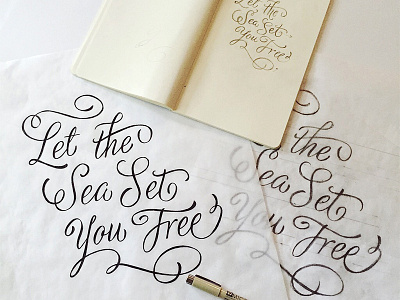 Let the
Sea Set
You Free
Let the
Sea Set
You Free
the
Sea Set
You Free